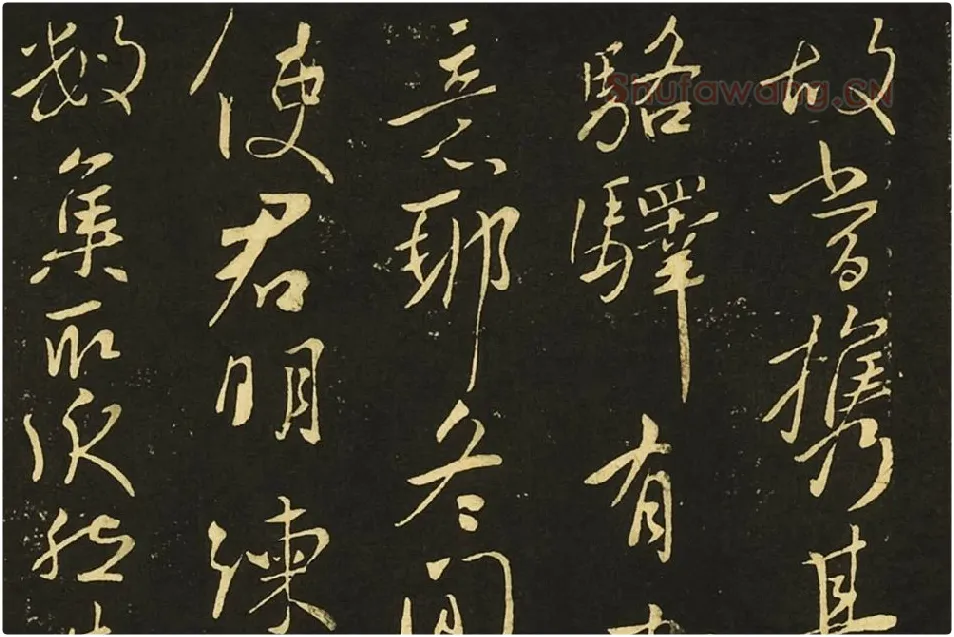 故嘗攜其
駱驛有
意耶冬間
使君明練
數集
Shufawang.CN